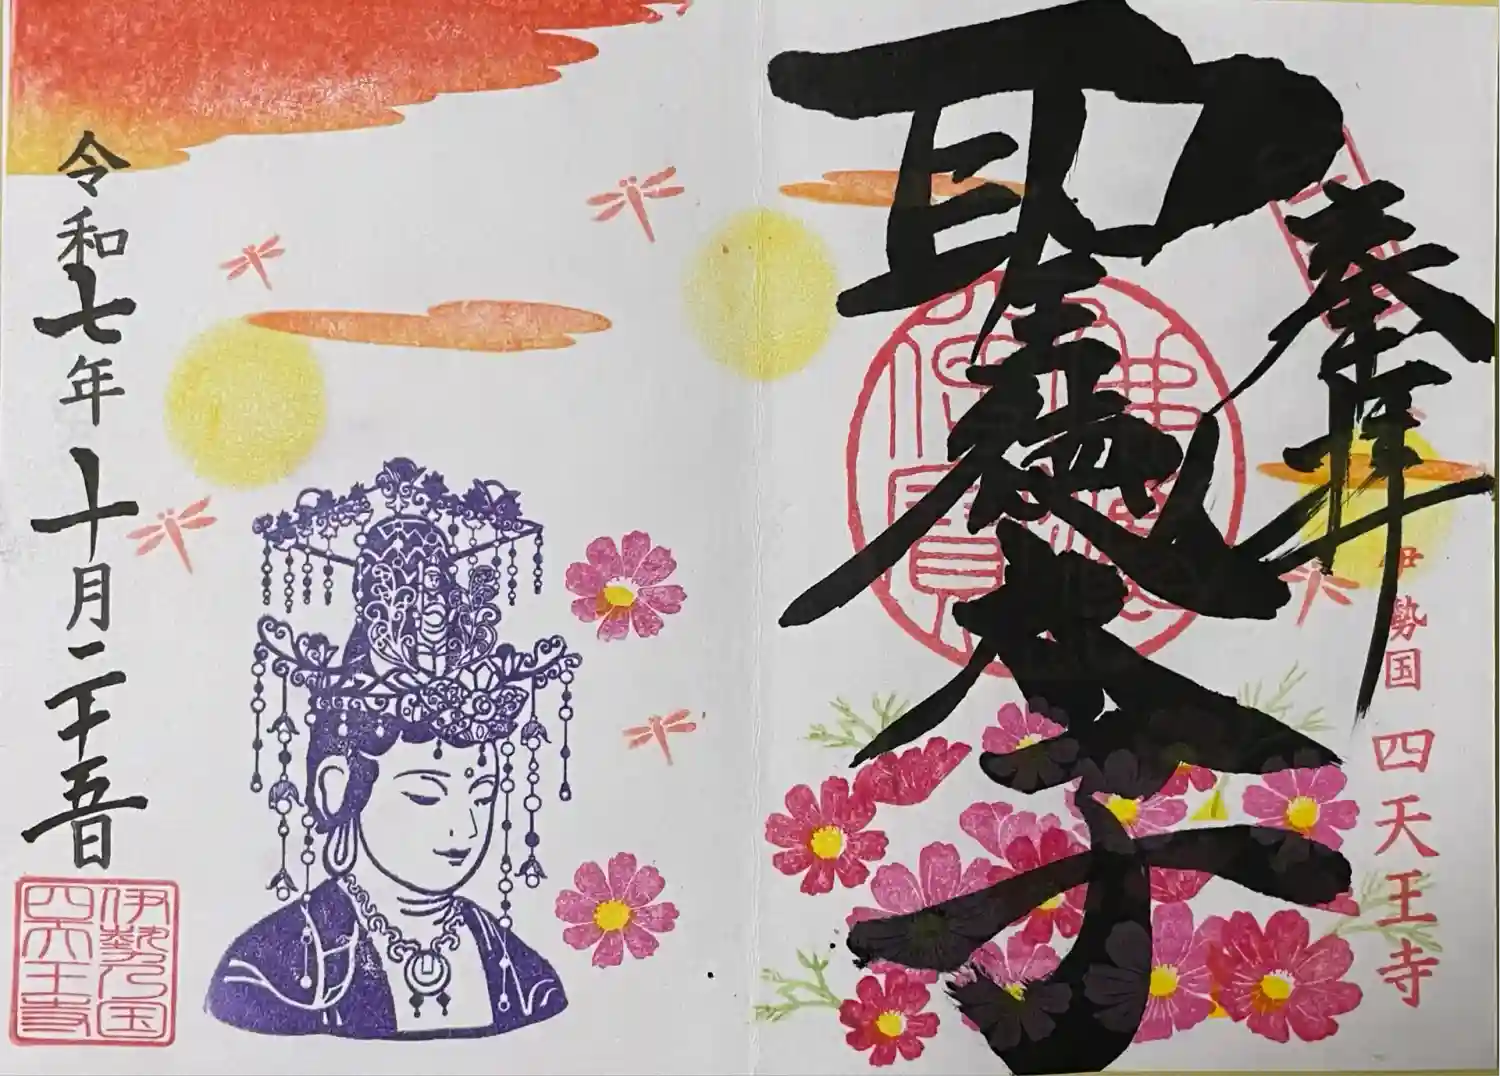 奉拝
伊勢国 四天王寺
聖徳太子
佛法僧寳
令和七年十月二十五日
伊勢国
四天王寺